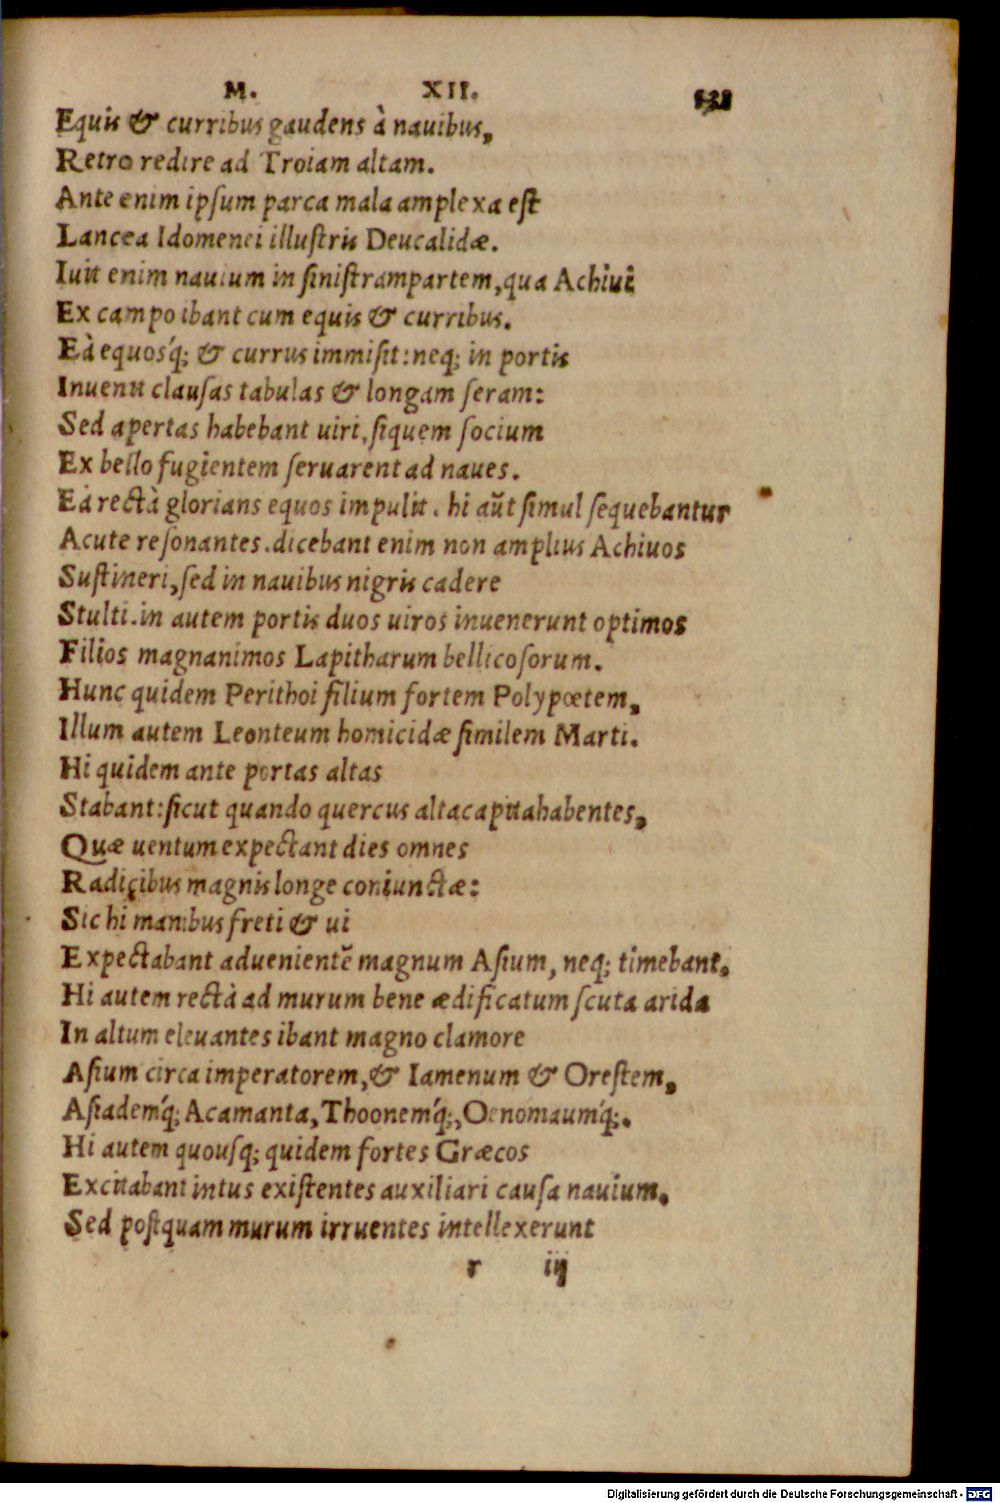 M. XII.
Equis & curribus gaudens à nauibus,
Retro redire ad Troiam altam.
Ante enim ipſum parca mala amplexa eſt
Lancea Idomenei illuſtris Deucalidæ.
Iuit enim nauium in ſiniſtram partem, qua Achiui
Ex campo ibant cum equis & curribus.
Eà equosq́; & currus immiſit: neq; in portis
Inuenit clauſas tabulas & longam ſeram:
Sed apertas habebant uiri, ſiquem ſocium
Ex bello fugientem ſeruarent ad naues.
Eà rectà glorians equos impulit. hi aũt ſimul ſequebantur
Acute reſonantes. dicebant enim non amplius Achiuos
Suſtineri, ſed in nauibus nigris cadere
Stulti. in autem portis duos uiros inuenerunt optimos
Filios magnanimos Lapitharum bellicoſorum.
Hunc quidem Perithoi filium fortem Polypœtem,
Illum autem Leonteum homicidæ ſimilem Marti.
Hi quidem ante portas altas
Stabant: ſicut quando quercus alta capita habentes,
Quæ uentum expectant dies omnes
Radicibus magnis longe coniunctæ:
Sic hi manibus freti & ui
Expectabant aduenientẽ magnum Aſium, neq; timebant.
Hi autem rectà ad murum bene ædificatum ſcuta arida
In altum eleuantes ibant magno clamore
Aſium circa imperatorem, & Iamenum & Oreſtem,
Aſiademq́; Acamanta, Thoonemq́;, Oenomaumq́;.
Hi autem quouſq; quidem fortes Græcos
Excitabant intus exiſtentes auxiliari cauſa nauium.
Sed poſtquam murum irruentes intellexerunt
r iij
Digitalisierung gefördert durch die Deutsche Forschungsgemeinschaft - DFG